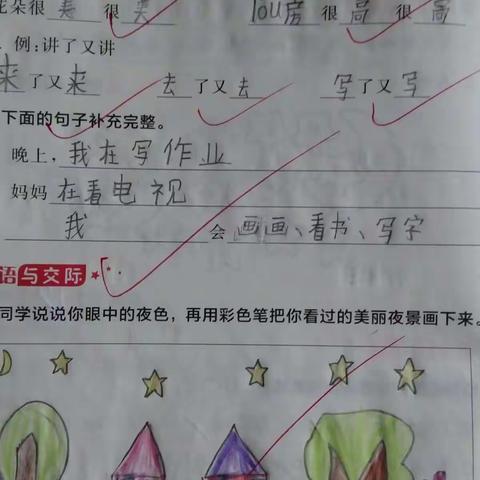 花朵很美很美 楼房很高很高
例:讲了又讲
来了又来 去了又去 写了又写
下面的句子补充完整。
晚上,我在写作业
妈妈在看电视
我会画画、看书、写字
语与交际
同学说说你眼中的夜色,再用彩色笔把你看过的美丽夜景画下来。